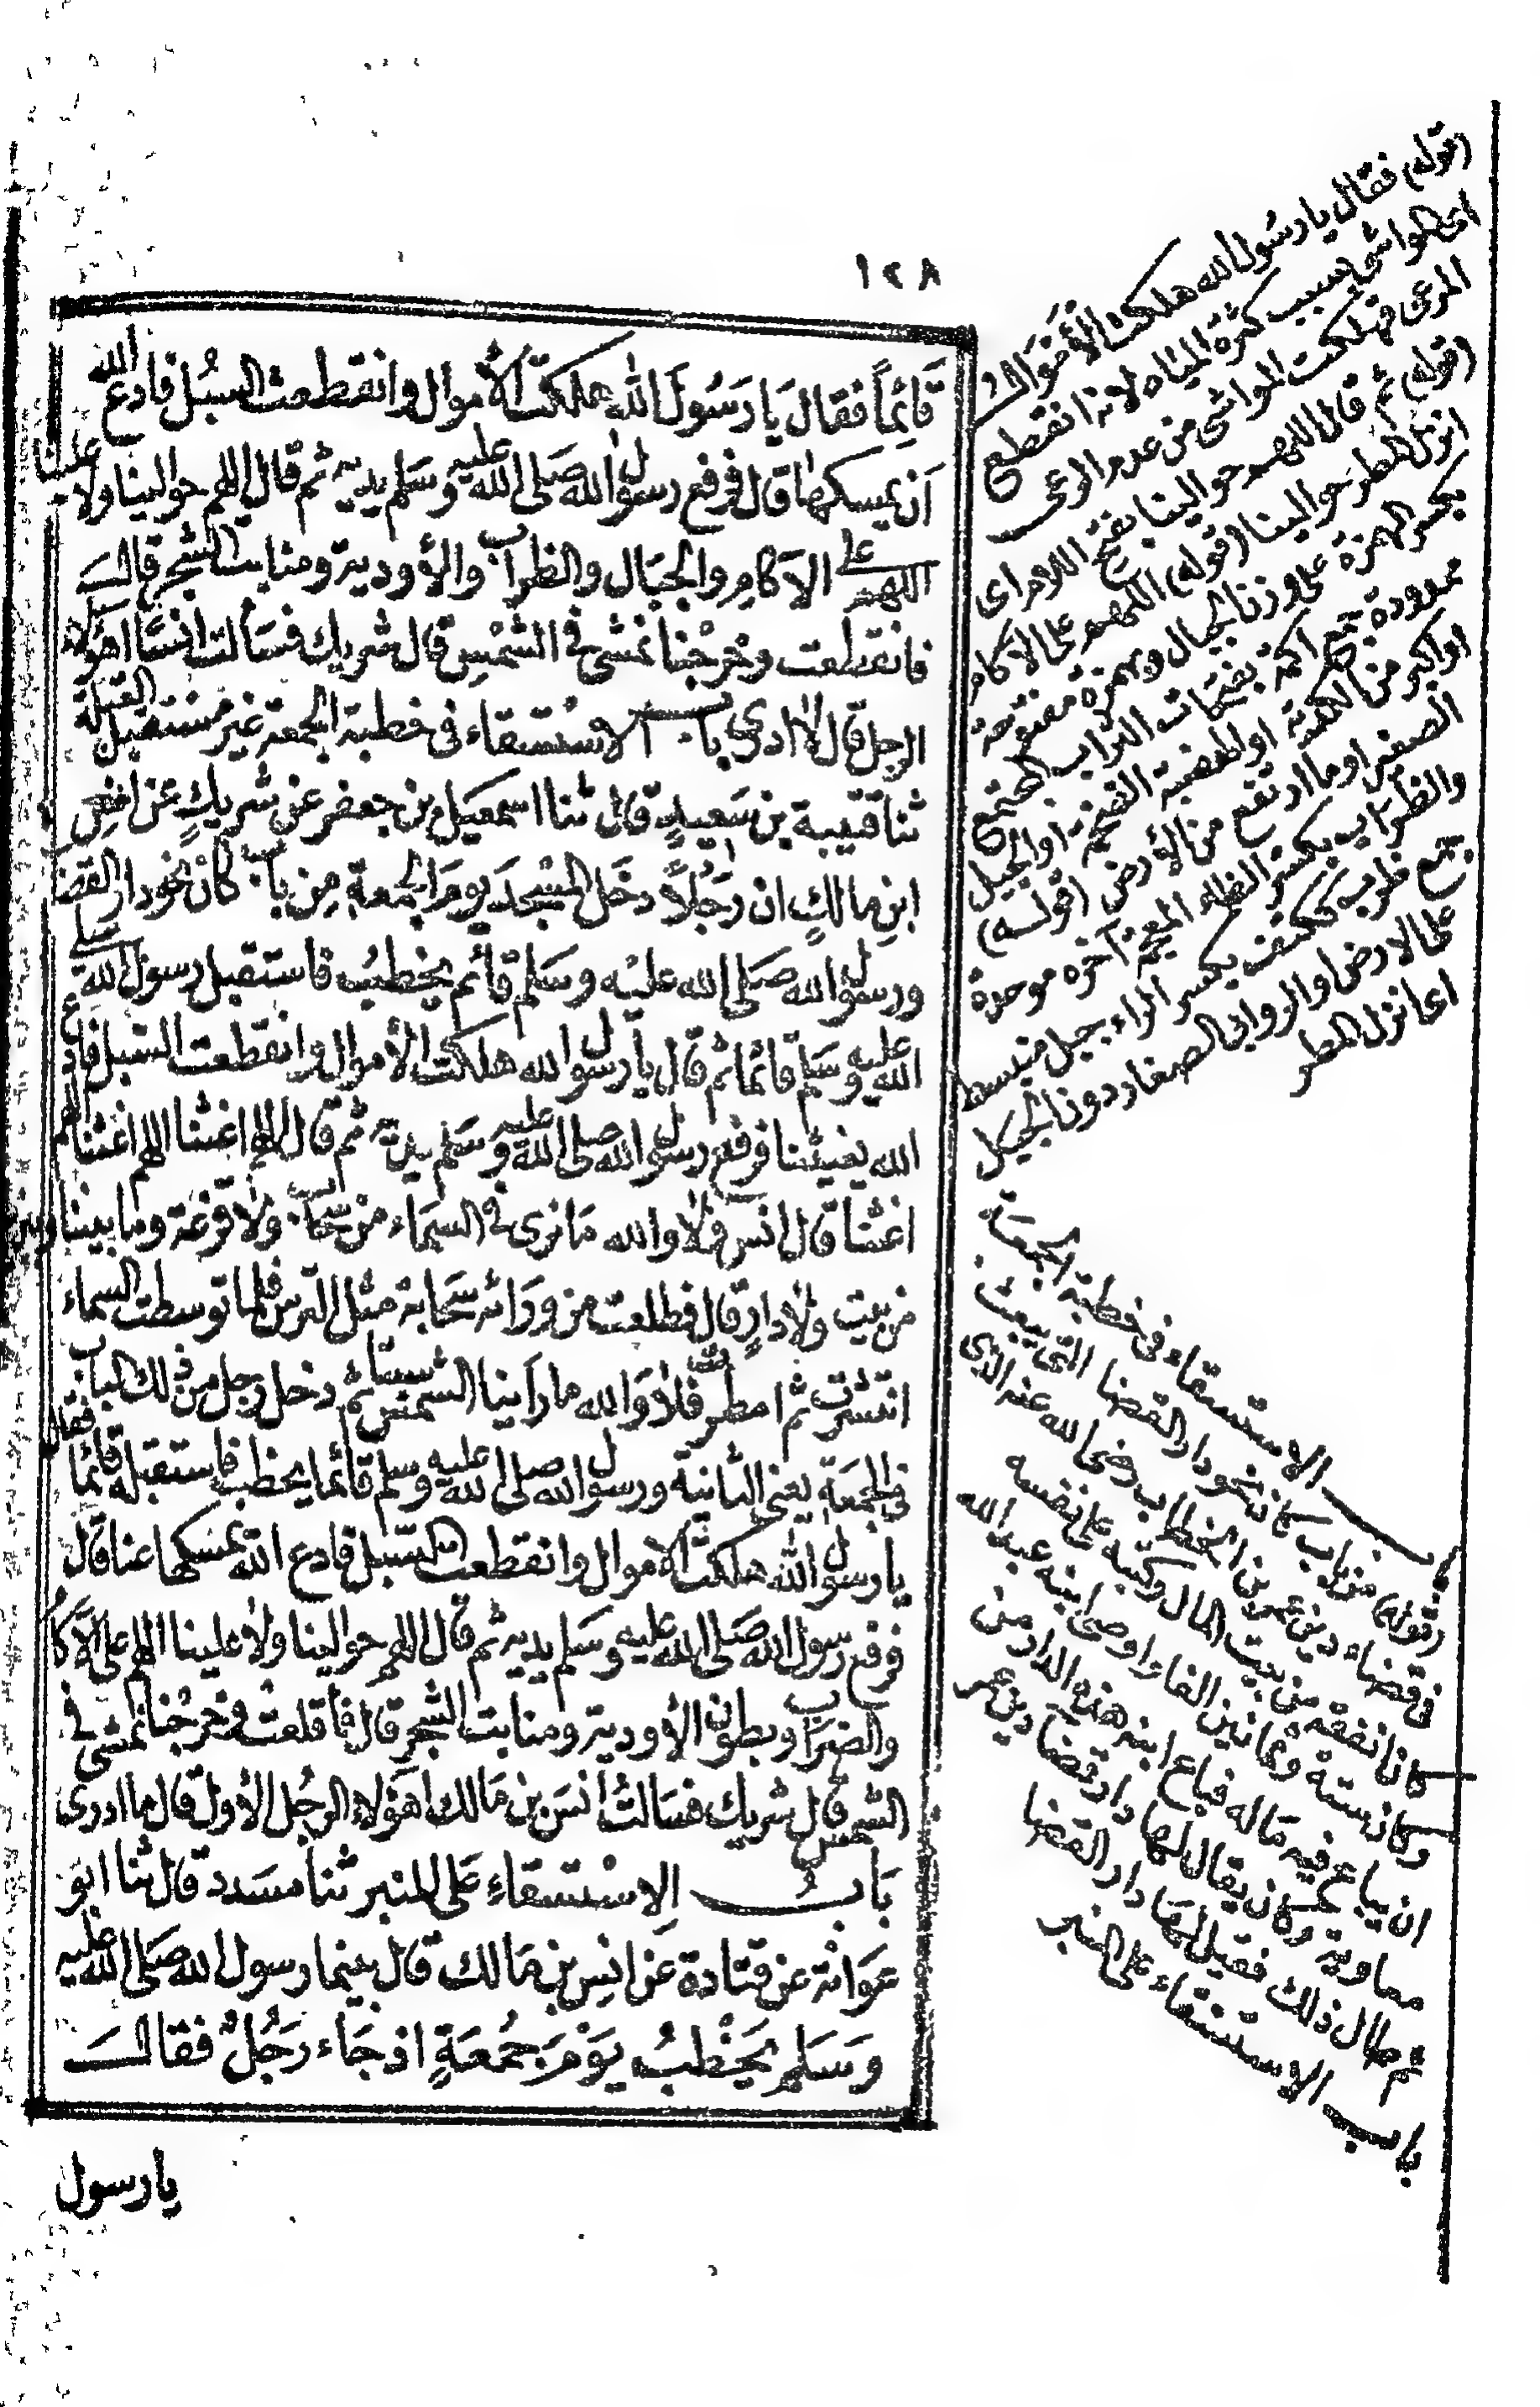 ١٢٨
قَائِماً فقال يَا رَسُولَ الله هلكت الأموال وانقطعت السبُل فادع الله
اَن يمسكها قال فرفع رسول الله صلى الله عليه وسَلم يديه ثم قال اللهم حوالينا ولا علينا
اللهم على الاَكامِ والجبَال والظراب والأودية ومنابت الشجر قالـــ
فانقطعت وخرجْنا نمشى فى الشمْسِ قال شريك فسَألت انسًا اهُوَ
الرجل قال لا ادرى باب الاسْتسقاء فى خطبة الجمعة غير مستقبل القبلة
ثنا قتيبة بن سَعِيدٍ قال ثنا اسمعيَل بن جعفر عن شريكٍ عن انسِ
ابنِ مالكٍ ان رَجُلاً دخَل المسْجدَ يومَ الجمعةِ مِن باب كان نحو دار القضا
ورسول الله صَلى الله عليْه وسَلم قائم يخطبُ فاستقبل رسول الله صلى
الله عليه وسَلم قائما ثم قال يا رسول الله هلكت الأموال وانقطعت السّبل فادع
الله يغيثنا فرفع رسول الله صلى الله عليه وسَلم يديه ثم قال اللهم اغثنا اللهم اغثنا اللهم
اغثنا قال انس فلا والله مَا نرى فى السمَاء من سحاب ولا قزعة وما بيننا وبين
من بيت ولا دارٍ قال فطلعت من وَرَائه سَحَابة مثل الترس فلما توسطت السماء
انتشرت ثم امطرت فلا وَالله ما رأينا الشمس سبتا ثم دخل رجل من ذلك الباب
فى الجمعَة يعنى الثانية ورسول الله صلى الله عليه وسلم قائما يخطب فاستقبله قائما فقال
يا رسول الله هلكت الاموال وانقطعت السّبل فادع الله يمسكها عنا قال
فرفع رسول الله صَلى الله عليه وسَلم يديه ثم قال اللهم حوالينا ولا علينا اللهم على الاَكا
والضرَاب وبطون الأودية ومنابت الشجر قال فاقلعت وخرجْنا نمشى فى
الشمس قال شريك فسَالت أنسَ بن مَالك اهوَ لا الرجُل الأول قال ما ادرى
بَابُ الاِسْتسقاءِ عَلى المنبر ثنا مسَدد قال ثنا ابَو
عوَانة عن قتادة عَن انسِ بن مَالك قال بينما رسول الله صَلى الله عليه
وَسَلم يخَطبُ يَوْمَ جُمعَةٍ اذ جَاء رَجُلٌ فقالـــَ
يا رسول
(قوله) فقال يا رسُول الله هلكت الأموال
اى المواشى بسبب كثرة المياه لانه انقطع
المرعى فهلكت المواشى من عدم الرعى
(قوله) ثم قال اللهم حوالينا بفتح اللام اى
انزل المطر حوالينا (قوله) اللهم على الاكام
بكسر الهمزة على وزن الجبال وبهمزة مفتوحة
ممدودة جمع اكمة بفتحات التراب المجتمع
او اكبر من الكدية او الهضبة الضخمة او الجبل
الصغير او ما ارتفع من الأرض (قوله)
والظراب بكسر الظاء المعجمة آخره موحدة
جمع ظرب ككتف بكسر الراء جبل منبسط
على الارض او الروابى الصغار دون الجبل
اى انزل المطر
باب الاستسقاء فى خطبة الجمعة
(قوله) من باب كان نحو دار القضا التى بيعت
فى قضاء دين عمر بن الخطاب رضى الله عنه الذى
كان انفقه من بيت المال وكتبه على نفسه
وكان ستة وثمانين الفا واوصى ابنه عبد الله
ان يباع فيه مَاله فباع ابنه هذه الدار من
معاوية وكان يقال لها دار قضا دين عمر
ثم طال ذلك فقيل لها دار القضا
باب الاستسقاء على المنبر